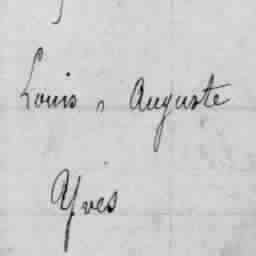 Louis, Auguste
Yves